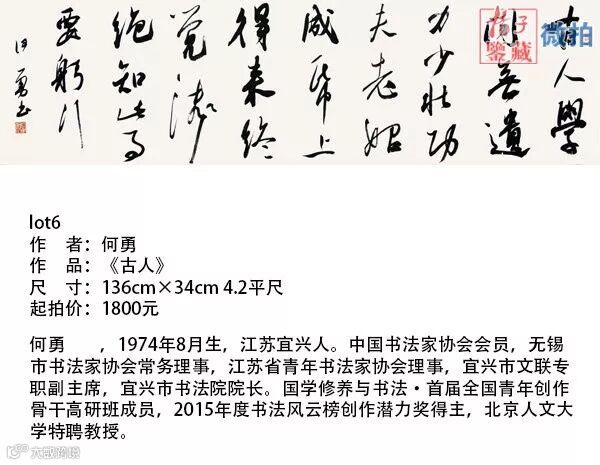 古人學
問無遺
力少壯功
夫老始
成帋上
得来終
覺淺
絶知此事
要躬行
何勇书
子
鉴藏
微拍
lot6
作 者：何勇
作 品：《古人》
尺 寸：136cm×34cm 4.2平尺
起拍价：1800元
何勇 ，1974年8月生，江苏宜兴人。中国书法家协会会员，无锡
市书法家协会常务理事，江苏省青年书法家协会理事，宜兴市文联专
职副主席，宜兴市书法院院长。国学修养与书法·首届全国青年创作
骨干高研班成员，2015年度书法风云榜创作潜力奖得主，北京人文大
学特聘教授。
大威跨境